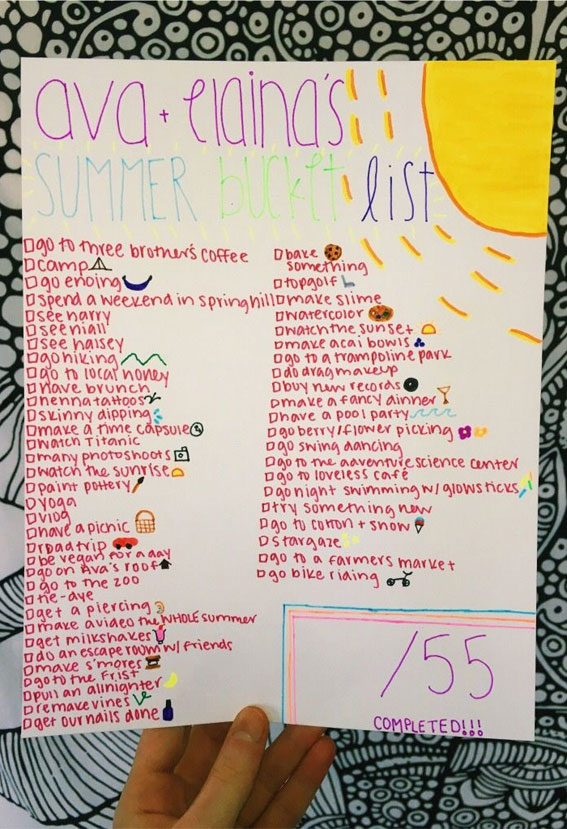 ava + elaina's
SUMMER bucket list
go to three brother's coffee
camp
go enoing
spend a weekend in springhill
see harry
see niall
see halsey
go hiking
go to local honey
have brunch
henna tattoos
skinny dipping
make a time capsule
watch Titanic
many photoshoots
watch the sunrise
paint pottery
yoga
vlog
have a picnic
road trip
be vegan for a day
go on Ava's roof
go to the zoo
tie-dye
get a piercing
make a video the WHOLE summer
get milkshakes
do an escape room w/ friends
make s'mores
go to the Frist
pull an allnighter
remake vines
get our nails done
bake
something
topgolf
make slime
watercolor
watch the sunset
make acai bowls
go to a trampoline park
do drag makeup
buy new records
make a fancy dinner
have a pool party
go berry/flower picking
go swing dancing
go to the adventure science center
go to loveless cafe
go night swimming w/ glowsticks
try something new
go to cotton + snow
stargaze
go to a farmers market
go bike riding
/55
COMPLETED!!!